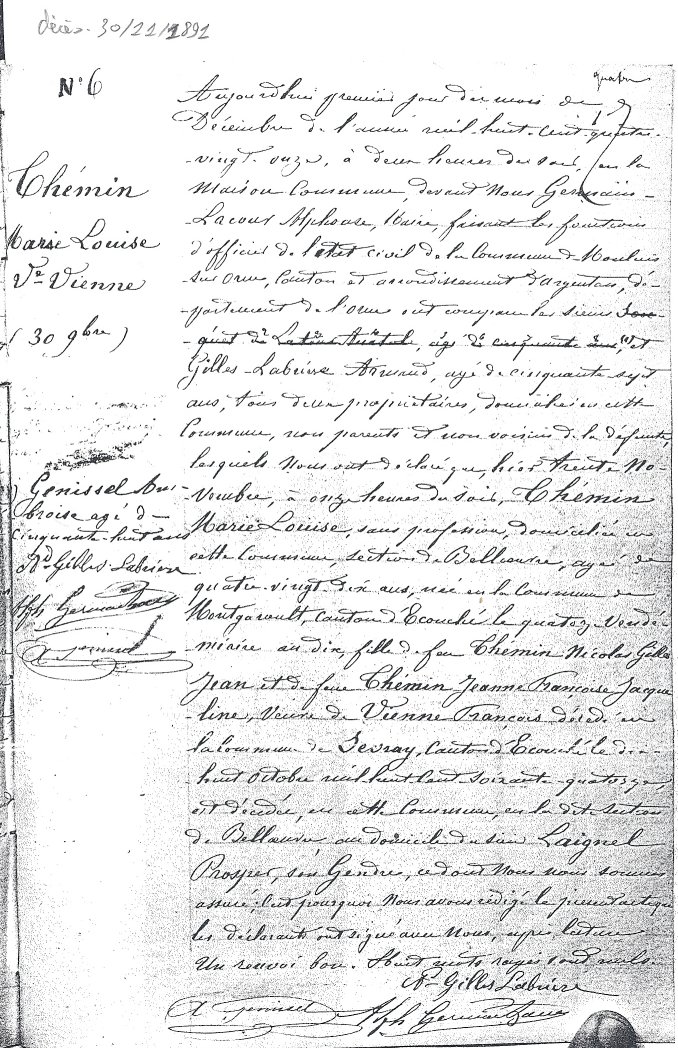 décès - 30/11/1891
N° 6
Thémin
Marie Louise
Ve Vienne
(30 9bre)
Genissel Am-
broise agé de
cinquante-huit ans
Ad Gilles-Labrière
Alph Germain Lacour
A genissel
Aujourd'hui premier jour du mois de
Décembre de l'année mil huit-cent-quatre-
-vingt-onze, à deux heures du soir, en la
Maison Commune, devant Nous Germain-
Lacour Alphonse, Maire, faisant les fonctions
d'officier de l'état civil de la Commune de Moulins
sur Orne, Canton et arrondissement d'Argentan, dé-
-partement de l'Orne ont comparu les sieurs
âgé de cinquante ans, et
Gilles-Labrière Armand, agé de cinquante sept
ans, tous deux propriétaires, domiciliés en cette
Commune, non parents et non voisins de la défunte,
lesquels Nous ont déclaré que hier trente No-
vembre, à onze heures du soir, Thémin
Marie Louise, sans profession, domiciliée en
cette Commune, section de Bellœuvre, agée de
quatre-vingt-dix ans, née en la Commune de
Montgaroult, Canton d'Ecouché le quatorze Vendé-
-miaire an dix, fille de feu Thémin Nicolas Gilles
Jean et de feue Thémin Jeanne Françoise Jacque-
-line, Veuve de Vienne François décédé en
la Commune de Sevray, Canton d'Ecouché le dix-
huit Octobre mil huit cent soixante-quatorze,
est décédée, en cette Commune, en la dite section
de Bellœuvre, au domicile du sieur Laignel
Prosper, son Gendre, ce dont Nous nous sommes
assuré; C'est pourquoi Nous avons rédigé le présent acte que
les déclarants ont signé avec Nous, après lecture
Un renvoi bon. Huit mots rayés sont nuls.
Ad Gilles Labrière
A genissel Alph Germain Lacour